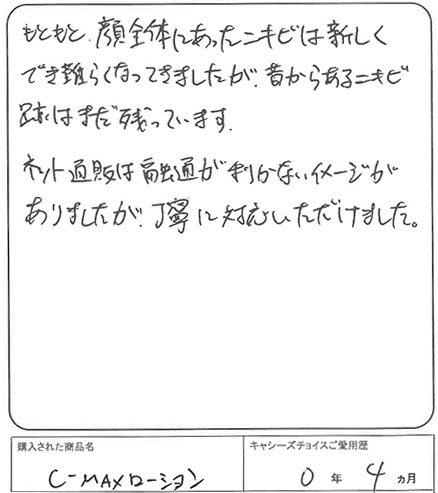 もともと、顔全体にあったニキビは新しく
でき難らくなってきましたが、昔からあるニキビ
跡はまだ残っています。
ネット通販は融通が利かないイメージが
ありましたが、丁寧に対応いただけました。
購入された商品名
キャシーズチョイスご愛用歴
C-MAXローション
0年 4ヵ月